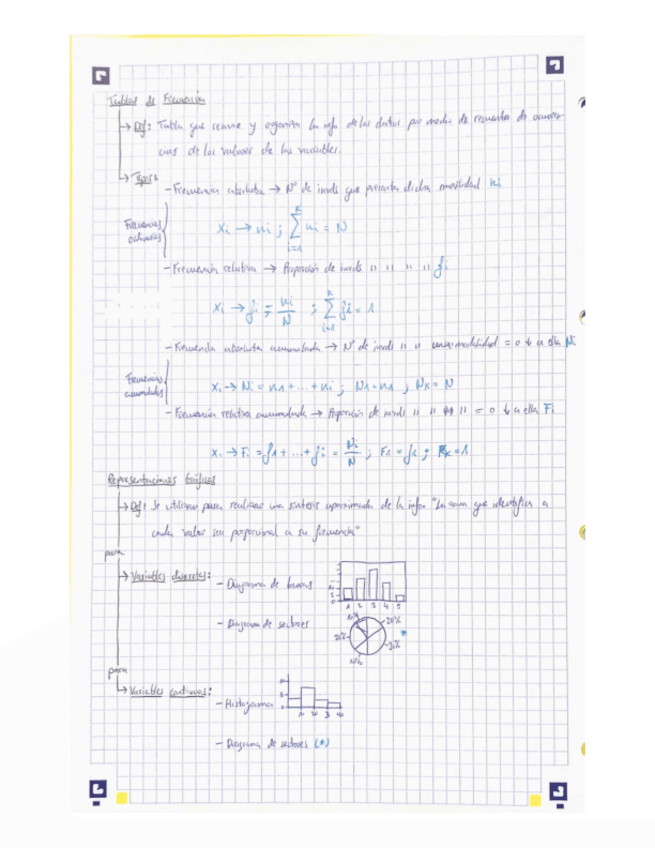 Tablas de Frecuencia
→ Def: Tabla que reune y organiza la info de los datos por medio de recuento de ocurren-
cias de los valores de las variables.
→ Tipos:
- Frecuencia absoluta → Nº de indvs que presenta dicha modalidad ni
Frecuencias ordinarias
xi → ni ; Σ i=1 k ni = N
- Frecuencia relativa → Proporción de indvs " " " " fi
xi → fi = ni/N ; Σ i=1 k fi = 1
- Frecuencia absoluta acumulada → Nº de indvs " " una modalidad = o ↓ a ella Ni
Frecuencias acumuladas
xi → Ni = n1 + ... + ni ; N1 = n1 , Nk = N
- Frecuencia relativa acumulada → Proporción de indvs " " " = o ↓ a ella Fi
xi → Fi = f1 + ... + fi = Ni/N ; F1 = f1 ; Fk = 1
Representaciones Gráficas
→ Def: Se utilizan para realizar una síntesis aproximada de la info. "La zona que identifica a
cada valor sea proporcional a su frecuencia"
para
→ Variables discretas: - Diagrama de barras
1 2 3 4 5
- Diagrama de sectores
20%
*
para
→ Variables continuas: - Histograma
10 20 30 40
- Diagrama de sectores (*)